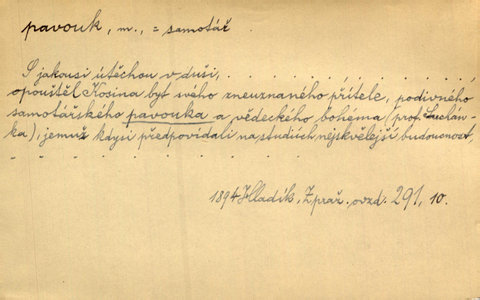 pavouk, m., = samotář
S jakousi útěchou v duši, . . . . . . . . . . . .
opouštěl Kosina byt svého zneuznaného přítele, podivného
samotářského pavouka a vědeckého bohema (prof.
ka), jemuž kdysi předpovídali na studiích nejskvělejší budoucnost,
. . . . . . . . . . . .
1894 Hladík, Z praž. ovzd. 291, 10.